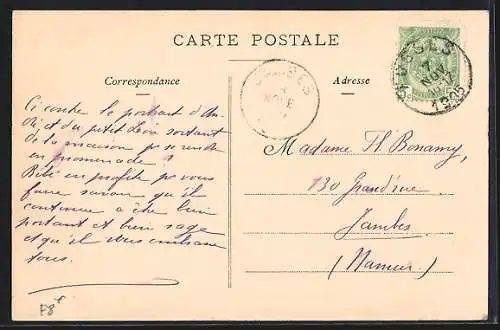 CARTE POSTALE
Correspondance
Adresse
Ci contre le portrait d'An-
dré et du petit Léon sortant
de la maison pr se rendre
en promenade ?
Bébé en profite pr vous
faire savoir qu'il
continue à être bien
portant et bien sage
et qu'il vous embrasse
tous.
Madame H. Bonamy,
130 Grand'rue
Jambes
(Namur)
NOV
1905
P8